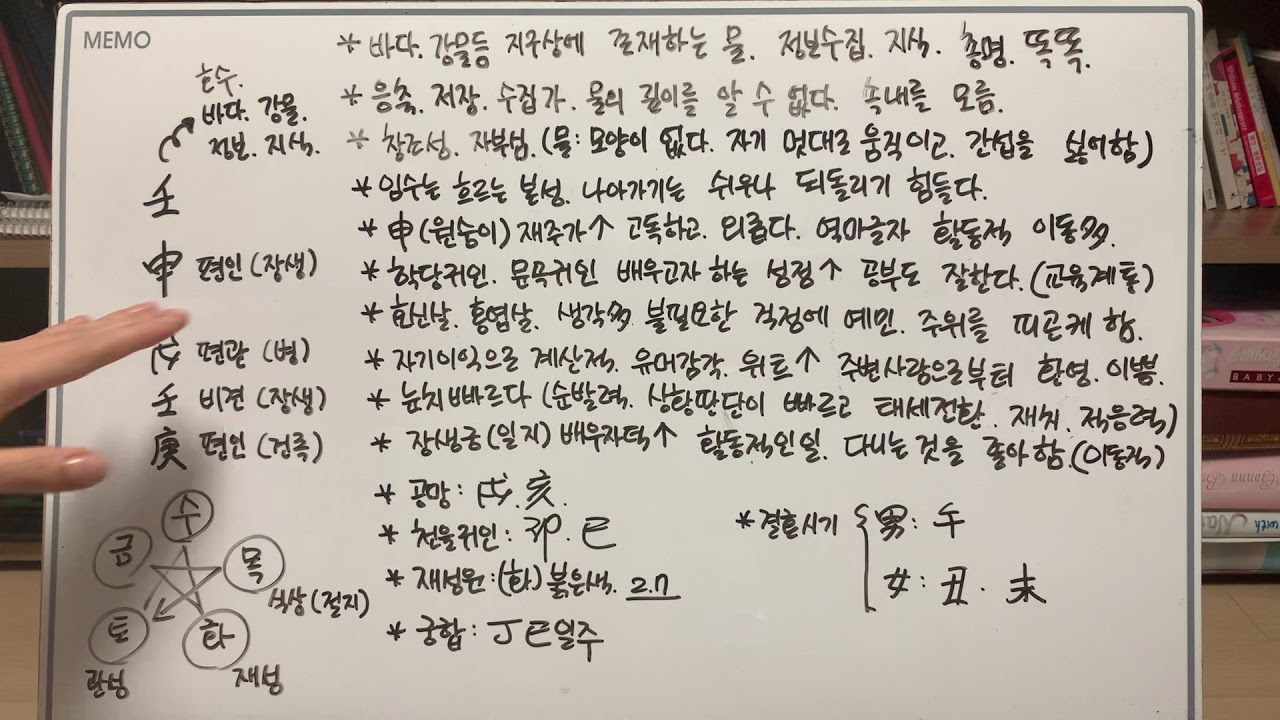 MEMO
호수.
바다. 강물.
정보. 지식.
壬
申 편인 (장생)
戊 편관 (병)
壬 비견 (장생)
庚 편인 (건록)
수
금
목
식상 (절지)
토
화
관성
재성
* 바다. 강물등 지구상에 존재하는 물. 정보수집. 지식. 총명. 똑똑.
* 응축. 저장. 수집가. 물의 깊이를 알 수 없다. 속내를 모름.
* 창조성. 자부심. (물: 모양이 없다. 자기 멋대로 움직이고. 간섭을 싫어함)
* 임수는 흐르는 본성. 나아가기는 쉬우나 되돌리기 힘들다.
* 申 (원숭이) 재주가↑ 고독하고. 외롭다. 역마글자 활동적 이동多.
* 학당귀인. 문곡귀인 배우고자 하는 성정↑ 공부도 잘한다. (교육계통)
* 효신살. 홍염살. 생각多 불필요한 걱정에 예민. 주위를 피곤케 함.
* 자기이익으로 계산적. 유머감각. 위트↑ 주변사람으로부터 환영. 이쁨.
* 눈치빠르다 (순발력. 상황판단이 빠르고 태세전환. 재치. 적응력)
* 장생궁 (일지) 배우자덕↑ 활동적인일. 다니는것을 좋아함. (이동적)
* 공망: 戌. 亥.
* 천을귀인: 卯. 巳
* 재성원: (화) 붉은색. 2.7
* 궁합: 丁巳일주
* 결혼시기 { 男: 午
女: 丑. 未